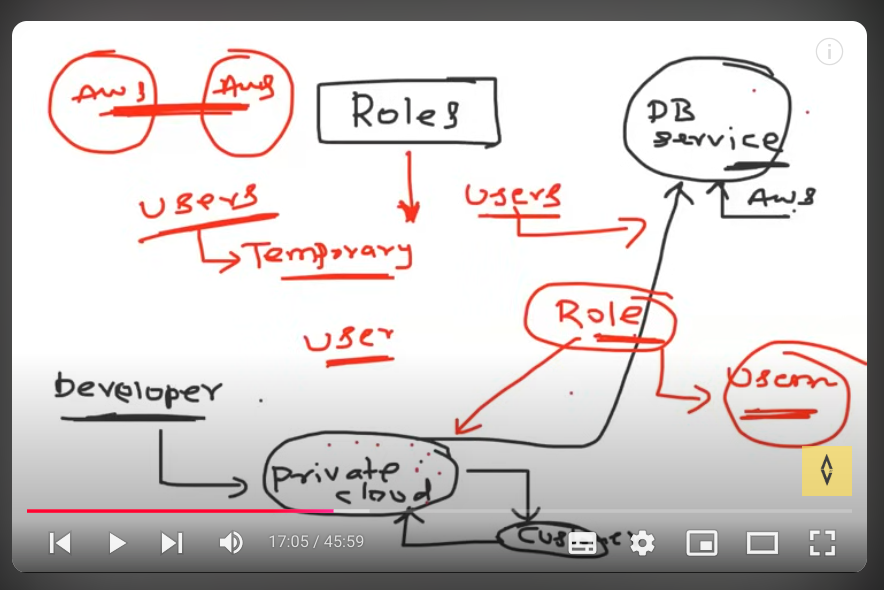 Aws
Aws
Roles
DB
service
Aws
Users
Temporary
Users
User
Role
Developer
private
cloud
17:05 / 45:59